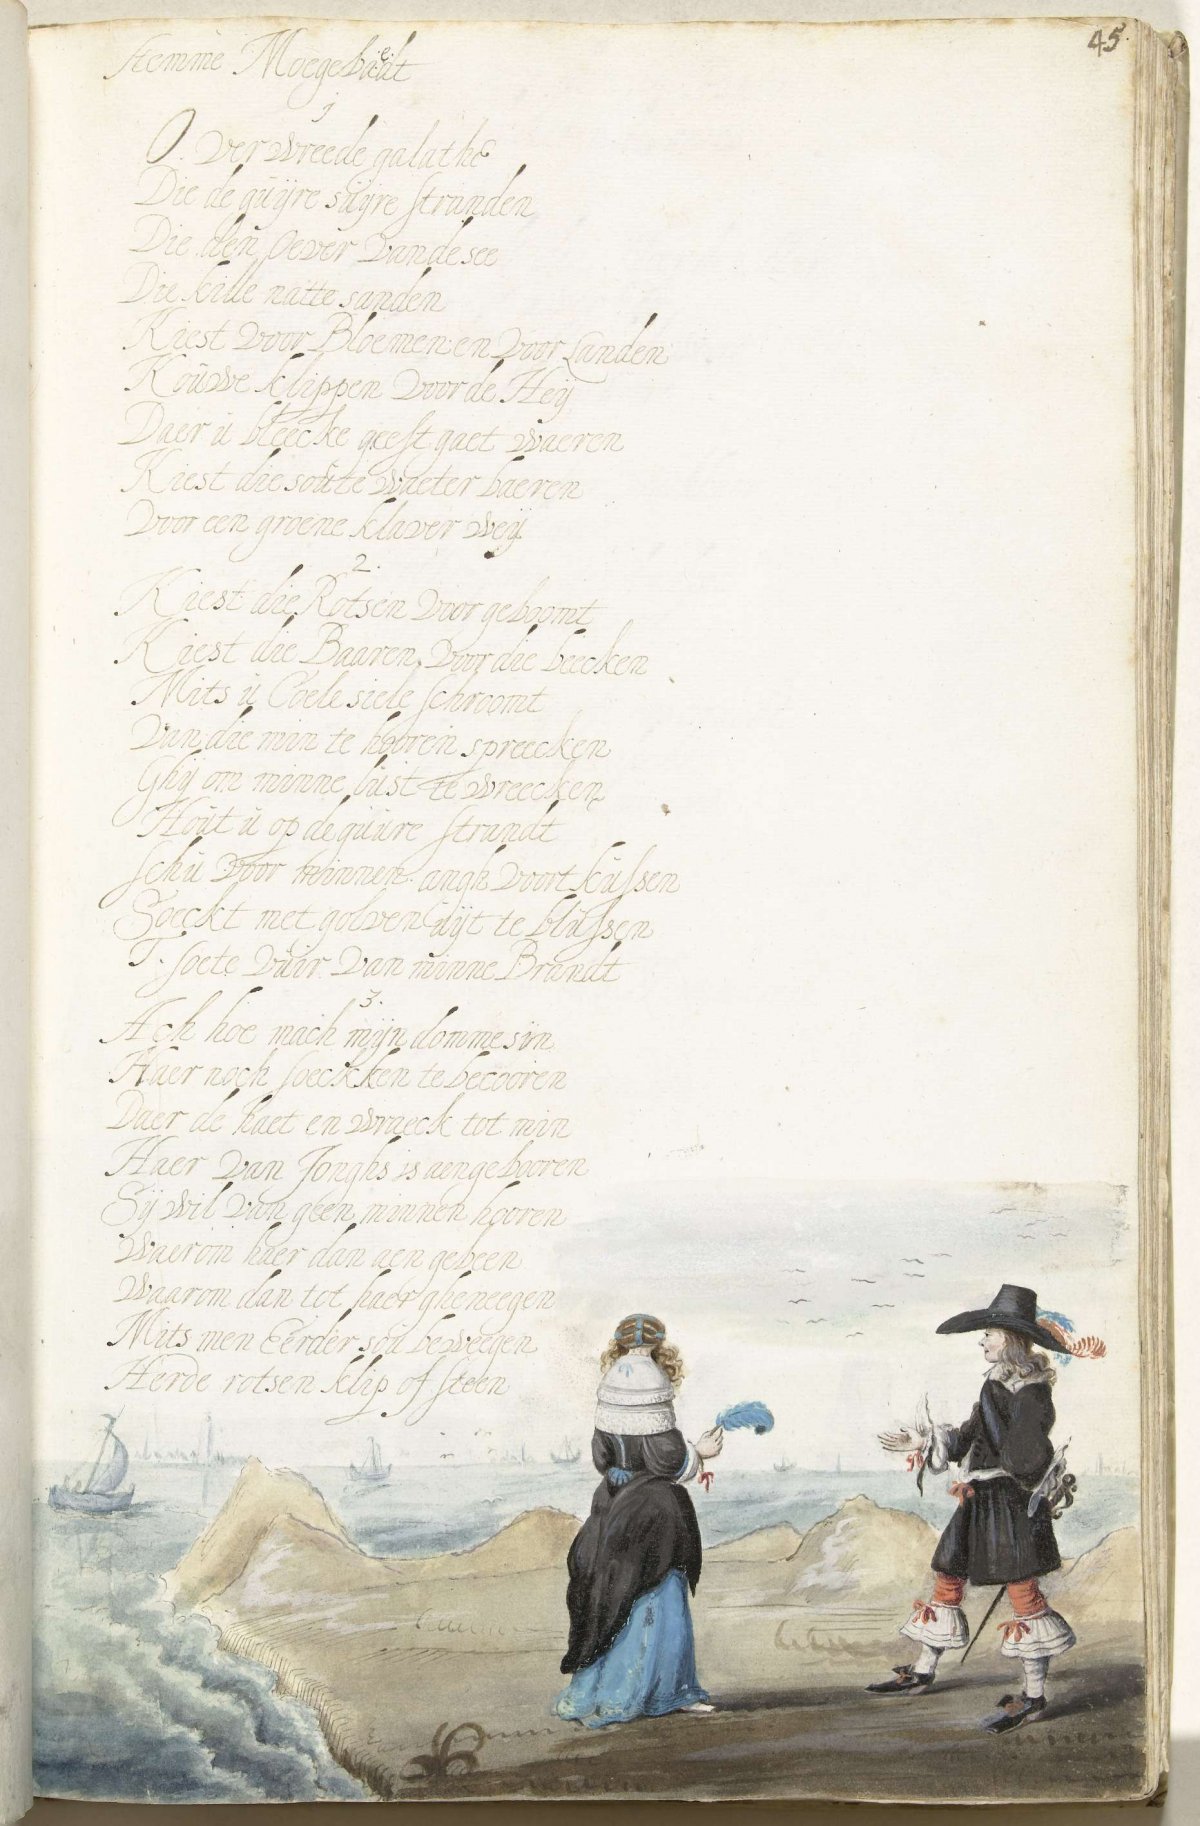 45.
Stemme Moegebaelt
1
O. verwreede galathe
Die de guijre suijre stranden
Die den Oever vande see
Die kille natte sanden
Kiest voor Bloemen en voor Landen
Kouwe klippen voor de Heij
Daer u bleecke geest gaet waeren
Kiest die soute waeter baeren
Voor een groene klaver weij
2.
Kiest die Rotsen voor geboomt
Kiest die Baaren voor die beecken
Mits u Coele siele schroomt
Van die min te hooren spreecken
Ghij om minne lust te wreecken
Hout u op de guure strandt
Schu voor minnen angh voort kussen
Soeckt met golven uijt te blussen
T. soete vuir van minne Brandt
3.
Ach hoe mach mijn domme sin
Haer noch soeckken te becooren
Daer de haet en wraeck tot min
Haer van Jonghs is aengebooren
Sij wil van geen minnen hooren
Waerom haer dan aen gebeen
Waarom dan tot haer gheneegen
Mits men Eerder sou beweegen
Herde rotsen klip of steen